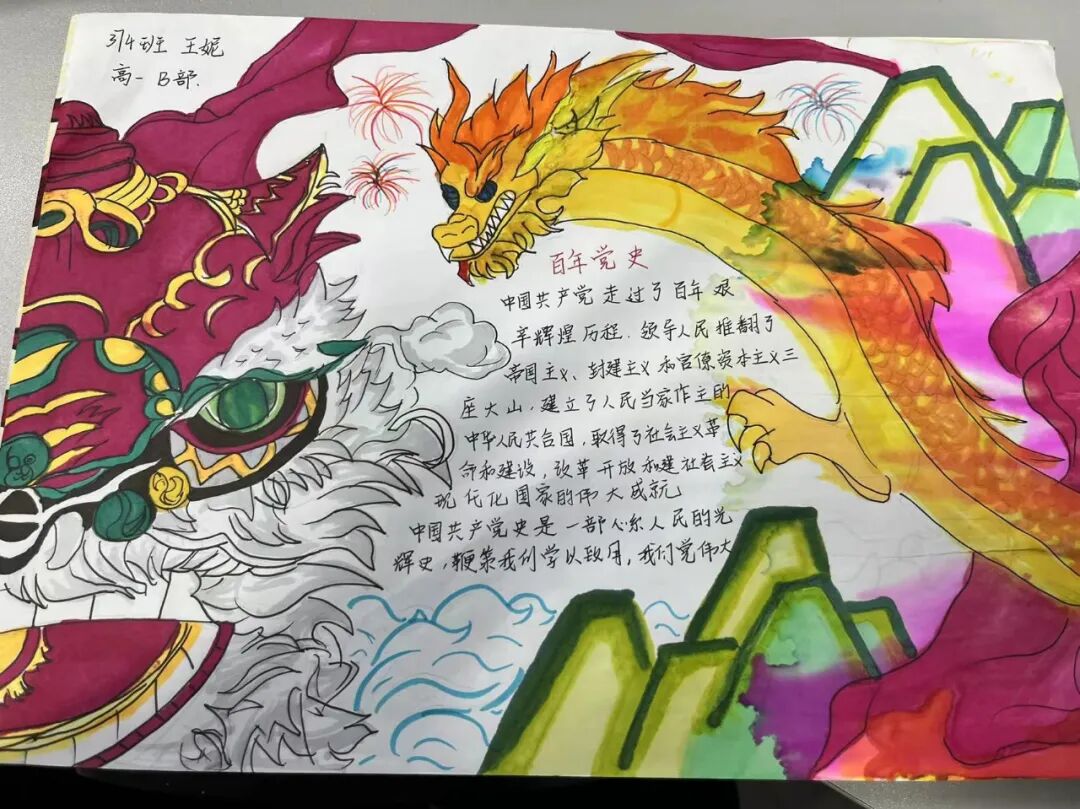 314班 王妮
高一 B部.
百年党史
中国共产党走过了百年艰
辛辉煌历程.领导人民推翻了
帝国主义、封建主义和官僚资本主义三
座大山,建立了人民当家作主的
中华人民共合国,取得了社会主义革
命和建设,改革开放和建社会主义
现代化国家的伟大成就
中国共产党史是一部心系人民的光
辉史,鞭策我们学以致用,我们党伟大